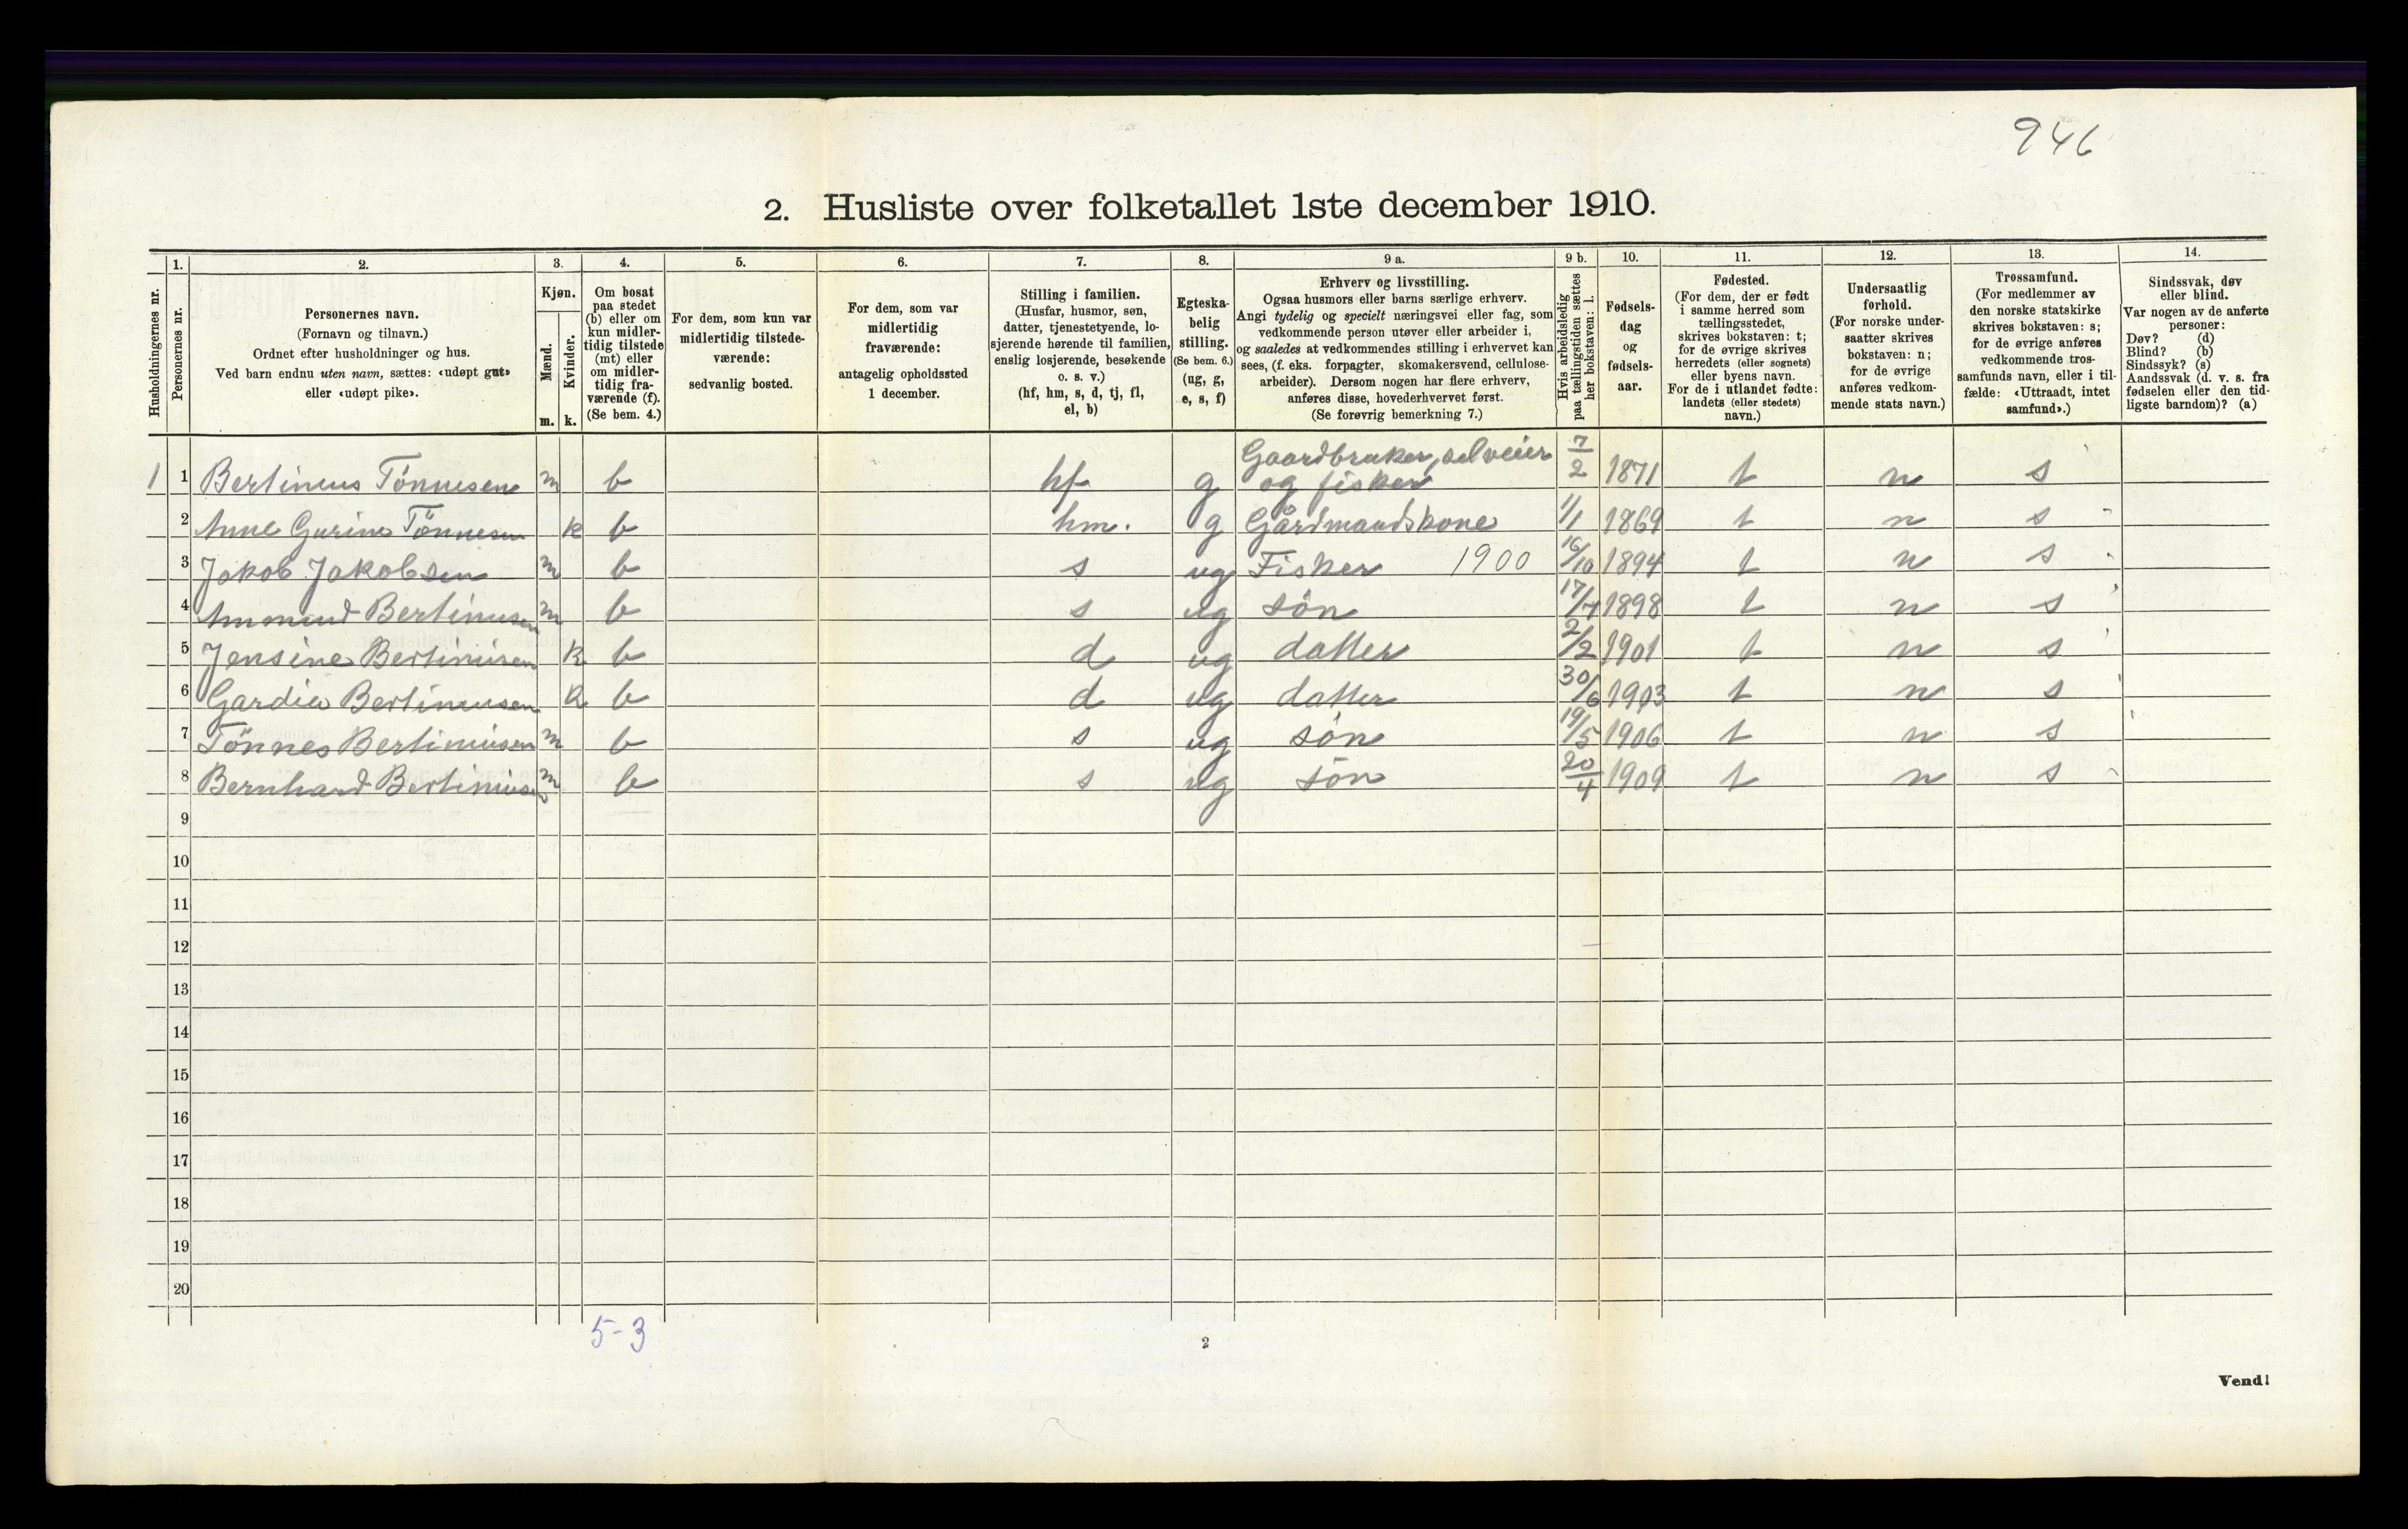 946
2. Husliste over folketallet 1ste december 1910.
Husholdningernes nr.
1.
Personernes nr.
2.
Personernes navn.
(Fornavn og tilnavn.)
Ordnet efter husholdninger og hus.
Ved barn endnu uten navn, sættes: «udøpt gut»
eller «udøpt pike».
3.
Kjøn.
Mænd.
Kvinder.
m. k.
4.
Om bosat
paa stedet
(b) eller om
kun midler-
tidig tilstede
(mt) eller
om midler-
tidig fra-
værende (f).
(Se bem. 4.)
5.
For dem, som kun var
midlertidig tilstede-
værende:
sedvanlig bosted.
6.
For dem, som var
midlertidig
fraværende:
antagelig opholdssted
1 december.
7.
Stilling i familien.
(Husfar, husmor, søn,
datter, tjenestetyende, lo-
sjerende hørende til familien,
enslig losjerende, besøkende
o. s. v.)
(hf, hm, s, d, tj, fl,
el, b)
8.
Egteska-
belig
stilling.
(Se bem. 6.)
(ug, g,
e, s, f)
9 a.
Erhverv og livsstilling.
Ogsaa husmors eller barns særlige erhverv.
Angi tydelig og specielt næringsvei eller fag, som
vedkommende person utøver eller arbeider i,
og saaledes at vedkommendes stilling i erhvervet kan
sees, (f. eks. forpagter, skomakersvend, cellulose-
arbeider). Dersom nogen har flere erhverv,
anføres disse, hovederhvervet først.
(Se forøvrig bemerkning 7.)
9 b.
Hvis arbeidsledig
paa tællingstiden sættes
her bokstaven: l.
10.
Fødsels-
dag
og
fødsels-
aar.
11.
Fødested.
(For dem, der er født
i samme herred som
tællingsstedet,
skrives bokstaven: t;
for de øvrige skrives
herredets (eller sognets)
eller byens navn.
For de i utlandet fødte:
landets (eller stedets)
navn.)
12.
Undersaatlig
forhold.
(For norske under-
saatter skrives
bokstaven: n;
for de øvrige
anføres vedkom-
mende stats navn.)
13.
Trossamfund.
(For medlemmer av
den norske statskirke
skrives bokstaven: s;
for de øvrige anføres
vedkommende tros-
samfunds navn, eller i til-
fælde: «Uttraadt, intet
samfund».)
14.
Sindssvak, døv
eller blind.
Var nogen av de anførte
personer:
Døv? (d)
Blind? (b)
Sindssyk? (s)
Aandssvak (d. v. s. fra
fødselen eller den tid-
ligste barndom)? (a)
1 1 Bertineus Tönnesen m b hf g Gaardbruker, selveier og fisker 7/2 1871 t n s
2 Anne Gurine Tönnesen k b hm. g Gårdmandskone 1/1 1869 t n s
3 Jakob Jakobsen m b s ug Fisker 1900 16/10 1894 t n s
4 Ammund Bertinusen m b s ug søn 17/4 1898 t n s
5 Jensine Bertinusen k b d ug datter 2/2 1901 t n s
6 Gardia Bertineusen k b d ug datter 30/6 1903 t n s
7 Tönnes Bertinusen m b s ug søn 19/5 1906 t n s
8 Bernhard Bertinusen m b s ug søn 20/4 1909 t n s
9
10
11
12
13
14
15
16
17
18
19
20
5-3
2
Vend!